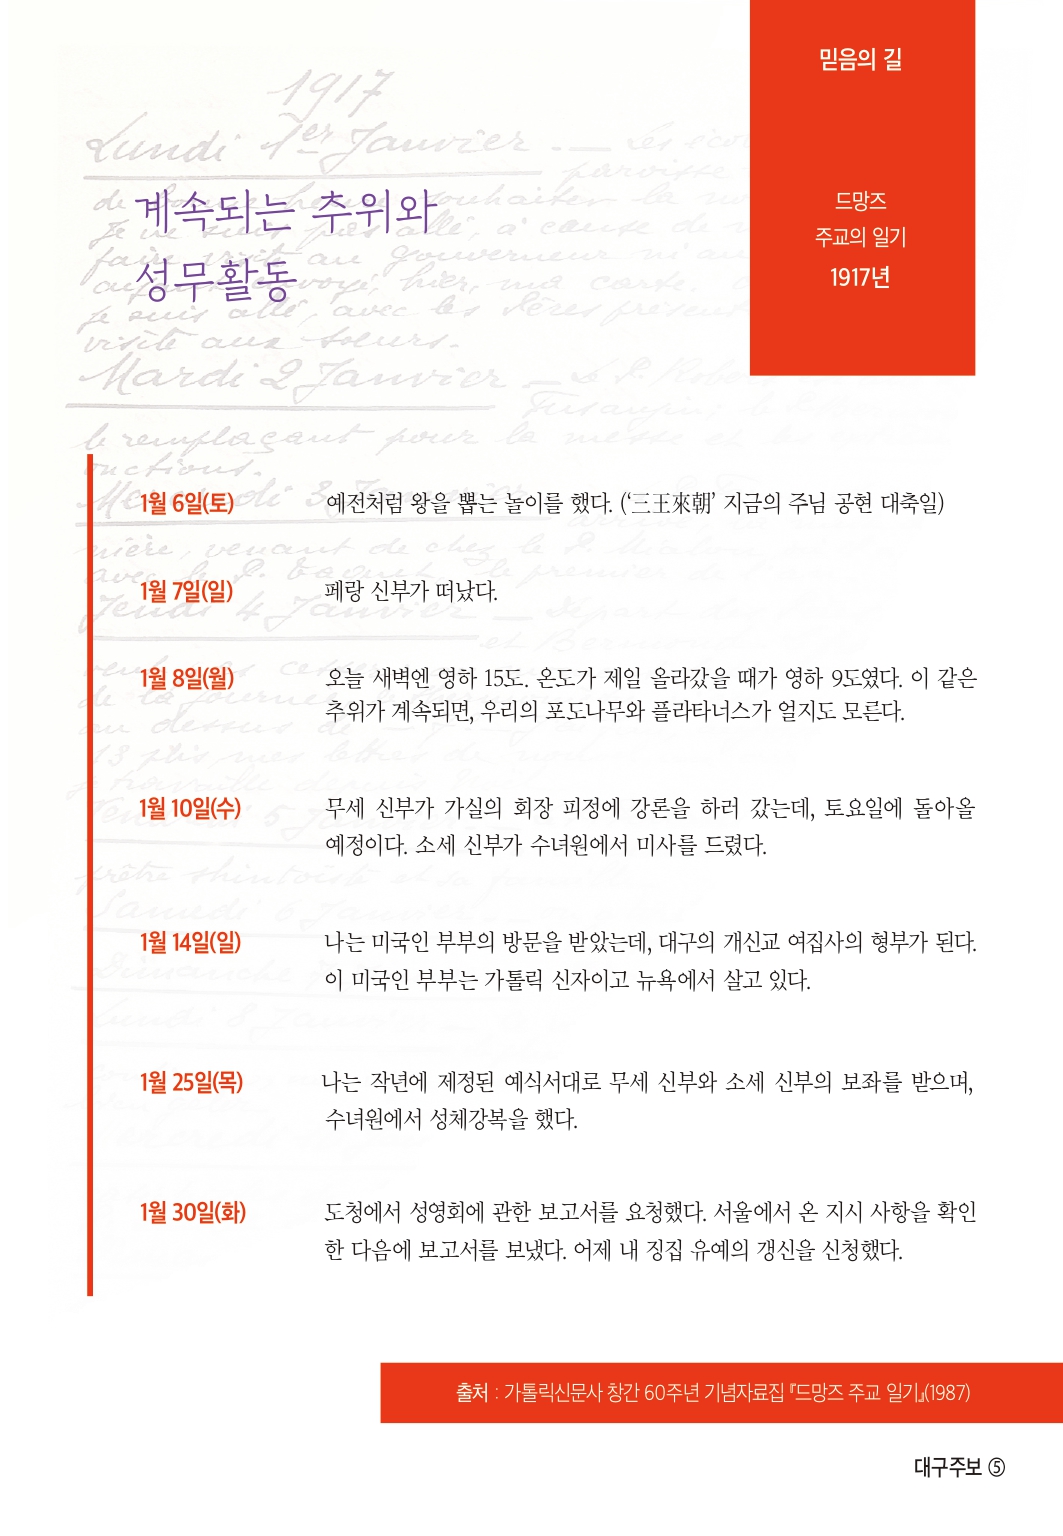 믿음의 길
드망즈
주교의 일기
1917년
1917
Lundi 1er Janvier
계속되는 추위와
성무활동
visite aux soeurs.
Mardi 2 Janvier
le remplaçant pour la messe et les
onctions.
1월 6일(토) 예전처럼 왕을 뽑는 놀이를 했다. (‘三王來朝’ 지금의 주님 공현 대축일)
1월 7일(일) 페랑 신부가 떠났다.
1월 8일(월) 오늘 새벽엔 영하 15도. 온도가 제일 올라갔을 때가 영하 9도였다. 이 같은
추위가 계속되면, 우리의 포도나무와 플라타너스가 얼지도 모른다.
1월 10일(수) 무세 신부가 가실의 회장 피정에 강론을 하러 갔는데, 토요일에 돌아올
예정이다. 소세 신부가 수녀원에서 미사를 드렸다.
1월 14일(일) 나는 미국인 부부의 방문을 받았는데, 대구의 개신교 여집사의 형부가 된다.
이 미국인 부부는 가톨릭 신자이고 뉴욕에서 살고 있다.
1월 25일(목) 나는 작년에 제정된 예식서대로 무세 신부와 소세 신부의 보좌를 받으며,
수녀원에서 성체강복을 했다.
1월 30일(화) 도청에서 성영회에 관한 보고서를 요청했다. 서울에서 온 지시 사항을 확인
한 다음에 보고서를 보냈다. 어제 내 징집 유예의 갱신을 신청했다.
출처 : 가톨릭신문사 창간 60주년 기념자료집 『드망즈 주교 일기』(1987)
대구주보 ⑤